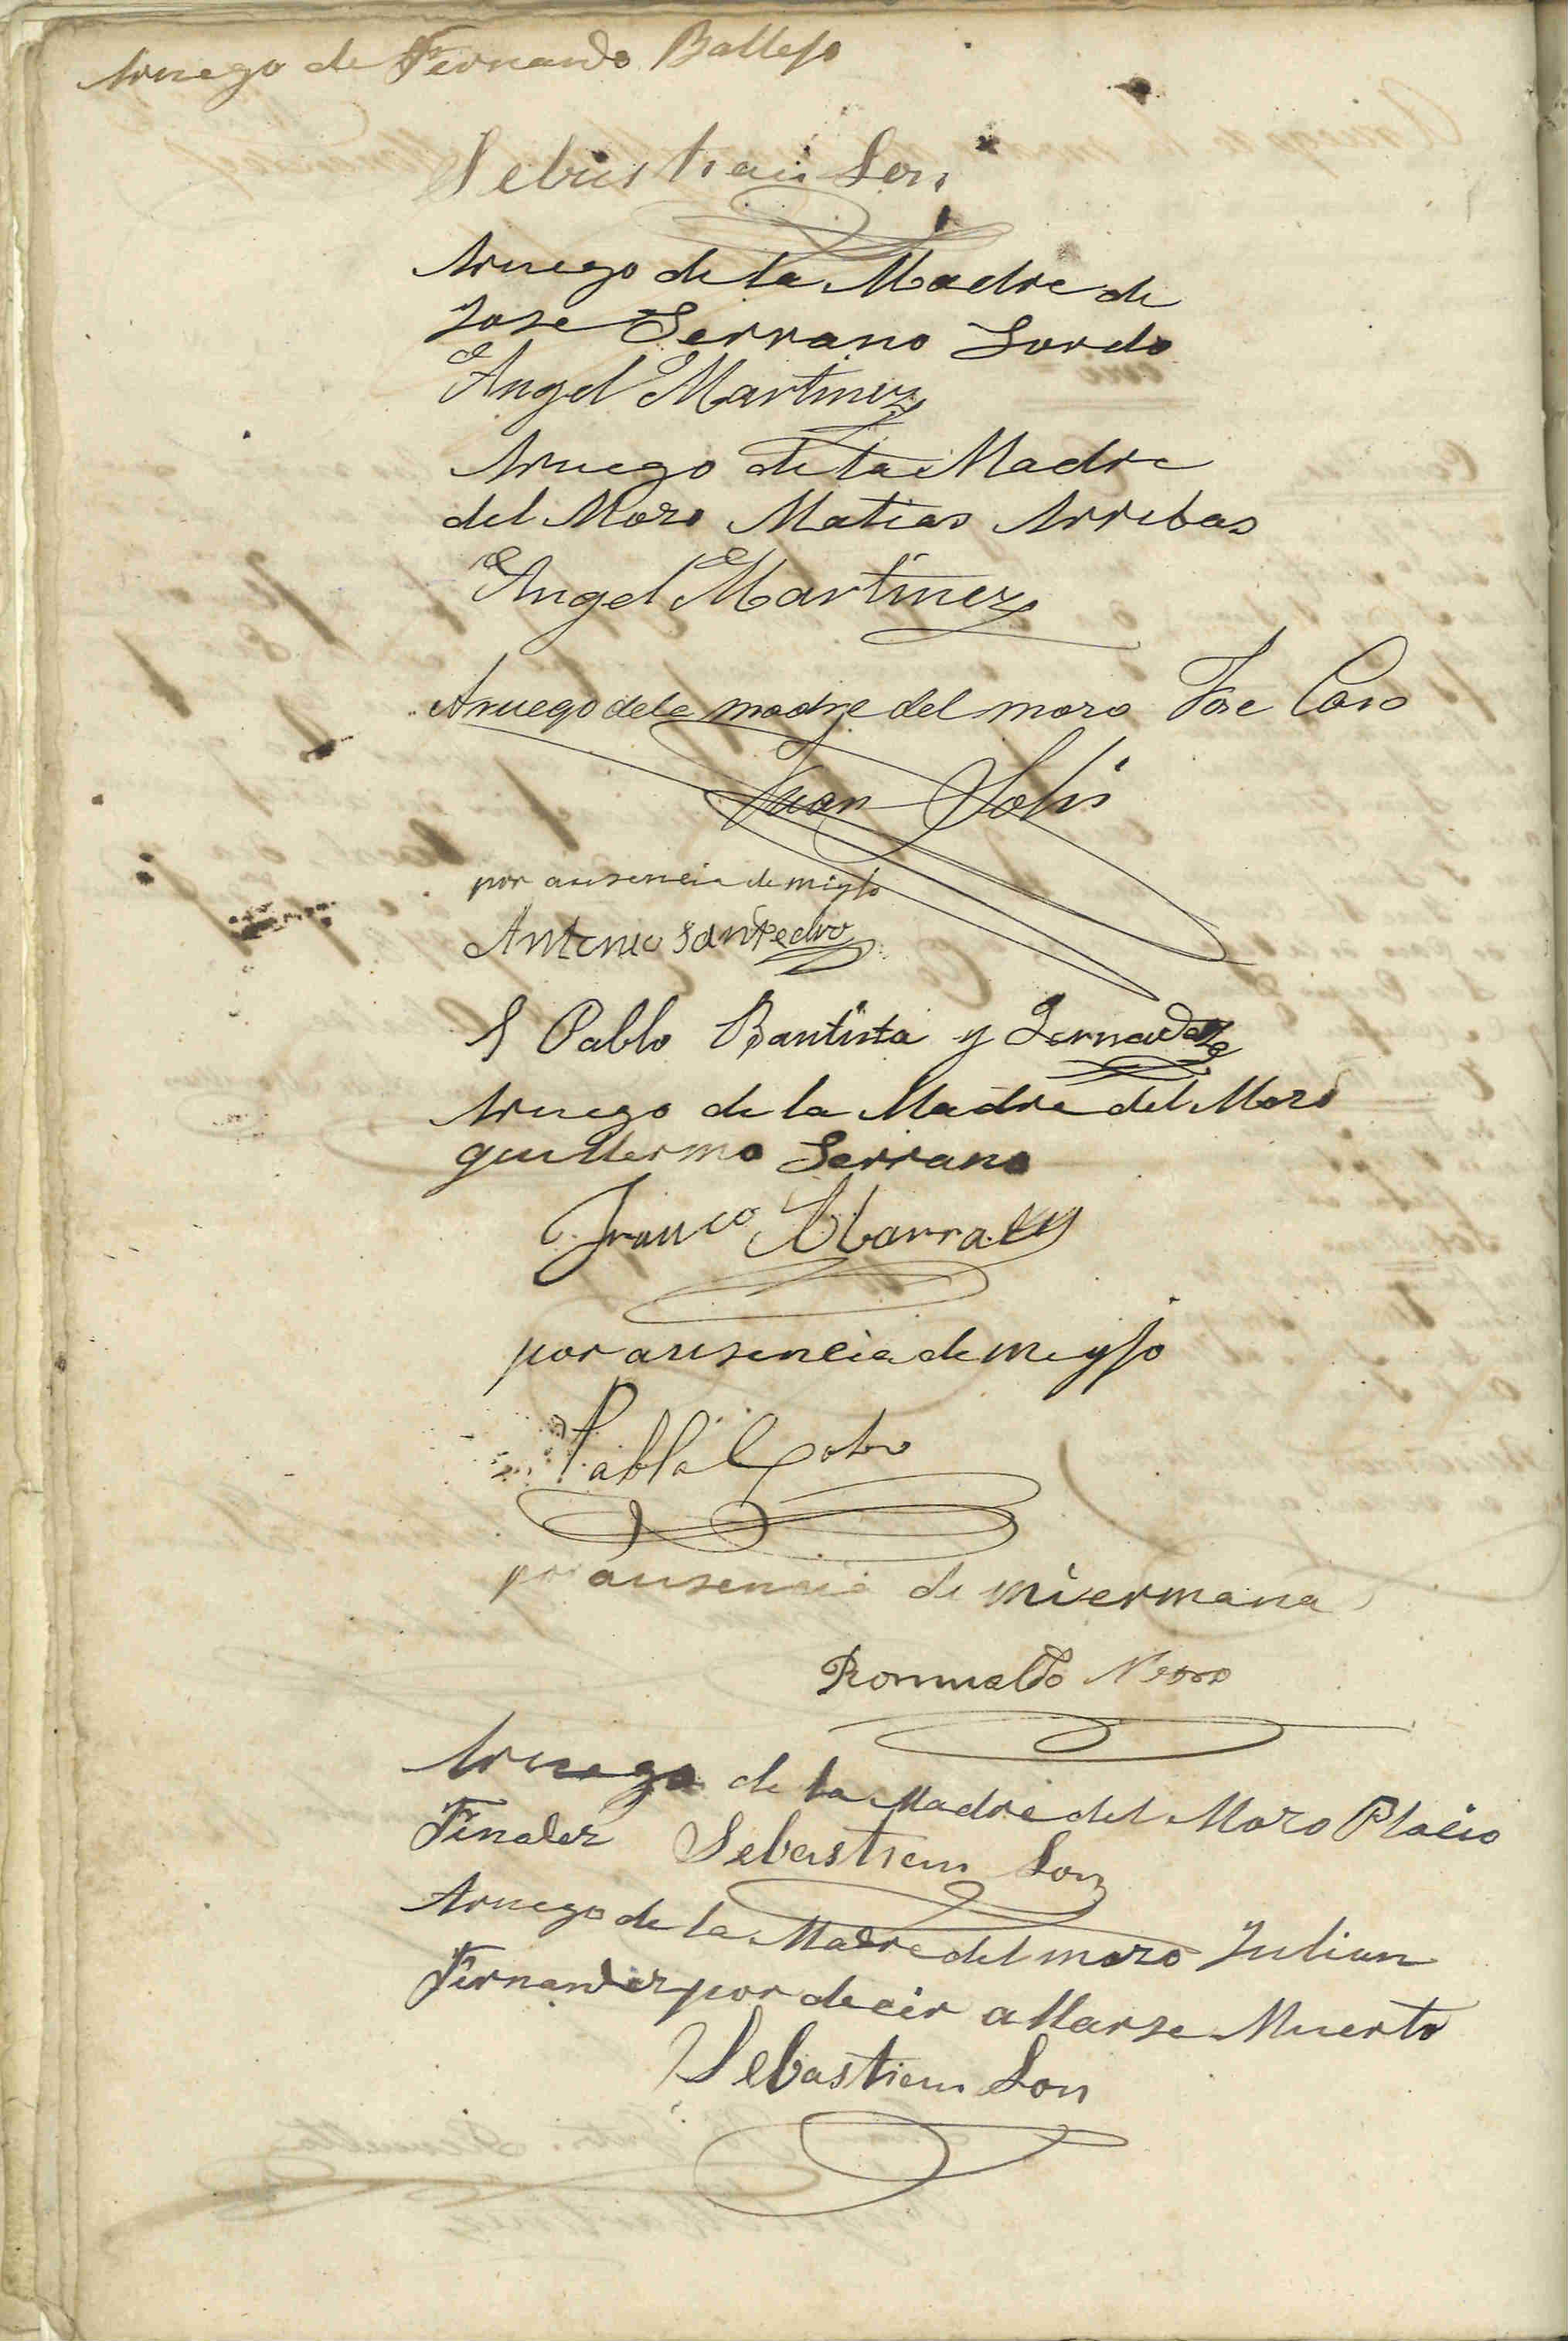 Aruego de Fernando Ballejo
Sebastian Son
Aruego de la Madre de
Jose Serrano Sordo
Angel Martinez
Aruego de la Madre
del Mozo Matias Arribas
Angel Martinez
Aruego de la madre del mozo Jose Caro
Juan Solis
por ausencia de miyto
Antonio SanPedro
S Pablo Bautista y Fernandez
Aruego de la Madre del Mozo
guillermo Serrano
Franco
por ausencia de me yjo
Pablo Cobo
por ausencia de miermana
Romualdo
Aruego de la Madre del Mozo Placio
Finales Sebastian Son
Aruego de la Madre del mozo Julian
Fernandez por decir allarse Muerto
Sebastian Son